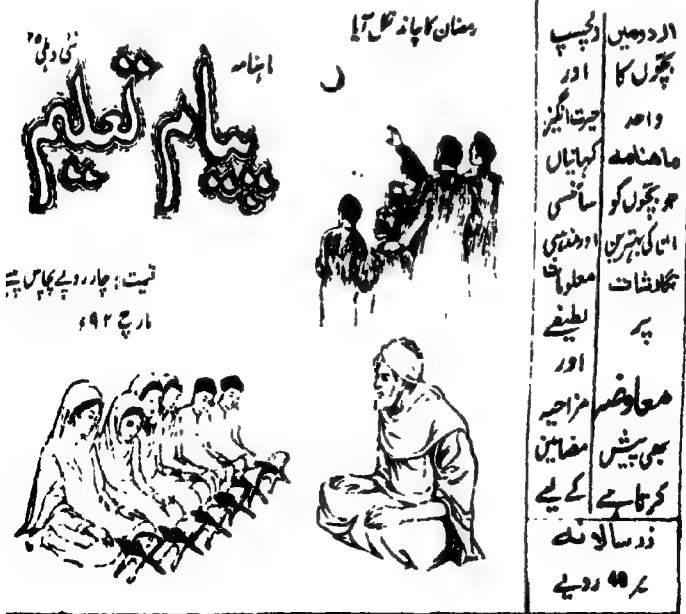 رمضان کا چاند نکل آیا
ماہنامہ
پیام تعلیم
نئی دہلی ۲۵
قیمت: چار روپے پچاس پیسے
مارچ ۹۲ء
اردو میں
بچّوں کا
واحد
ماھنامہ
جو بچّوں کو
انکی بہترین
نگارشات
پر
معاوضہ
بھی پیش
کرتا ہے
دلچسپ
اور
حیرت انگیز
کہانیاں
سائنسی
اور مذہبی
معلومات
لطیفے
اور
مزاحیہ
مضامین
کے لیے
زر سالانہ
40 روپے